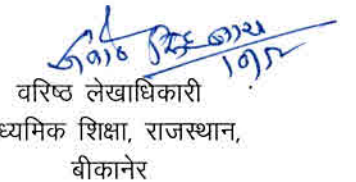 वरिष्ठ लेखाधिकारी
ध्यमिक शिक्षा, राजस्थान,
बीकानेर